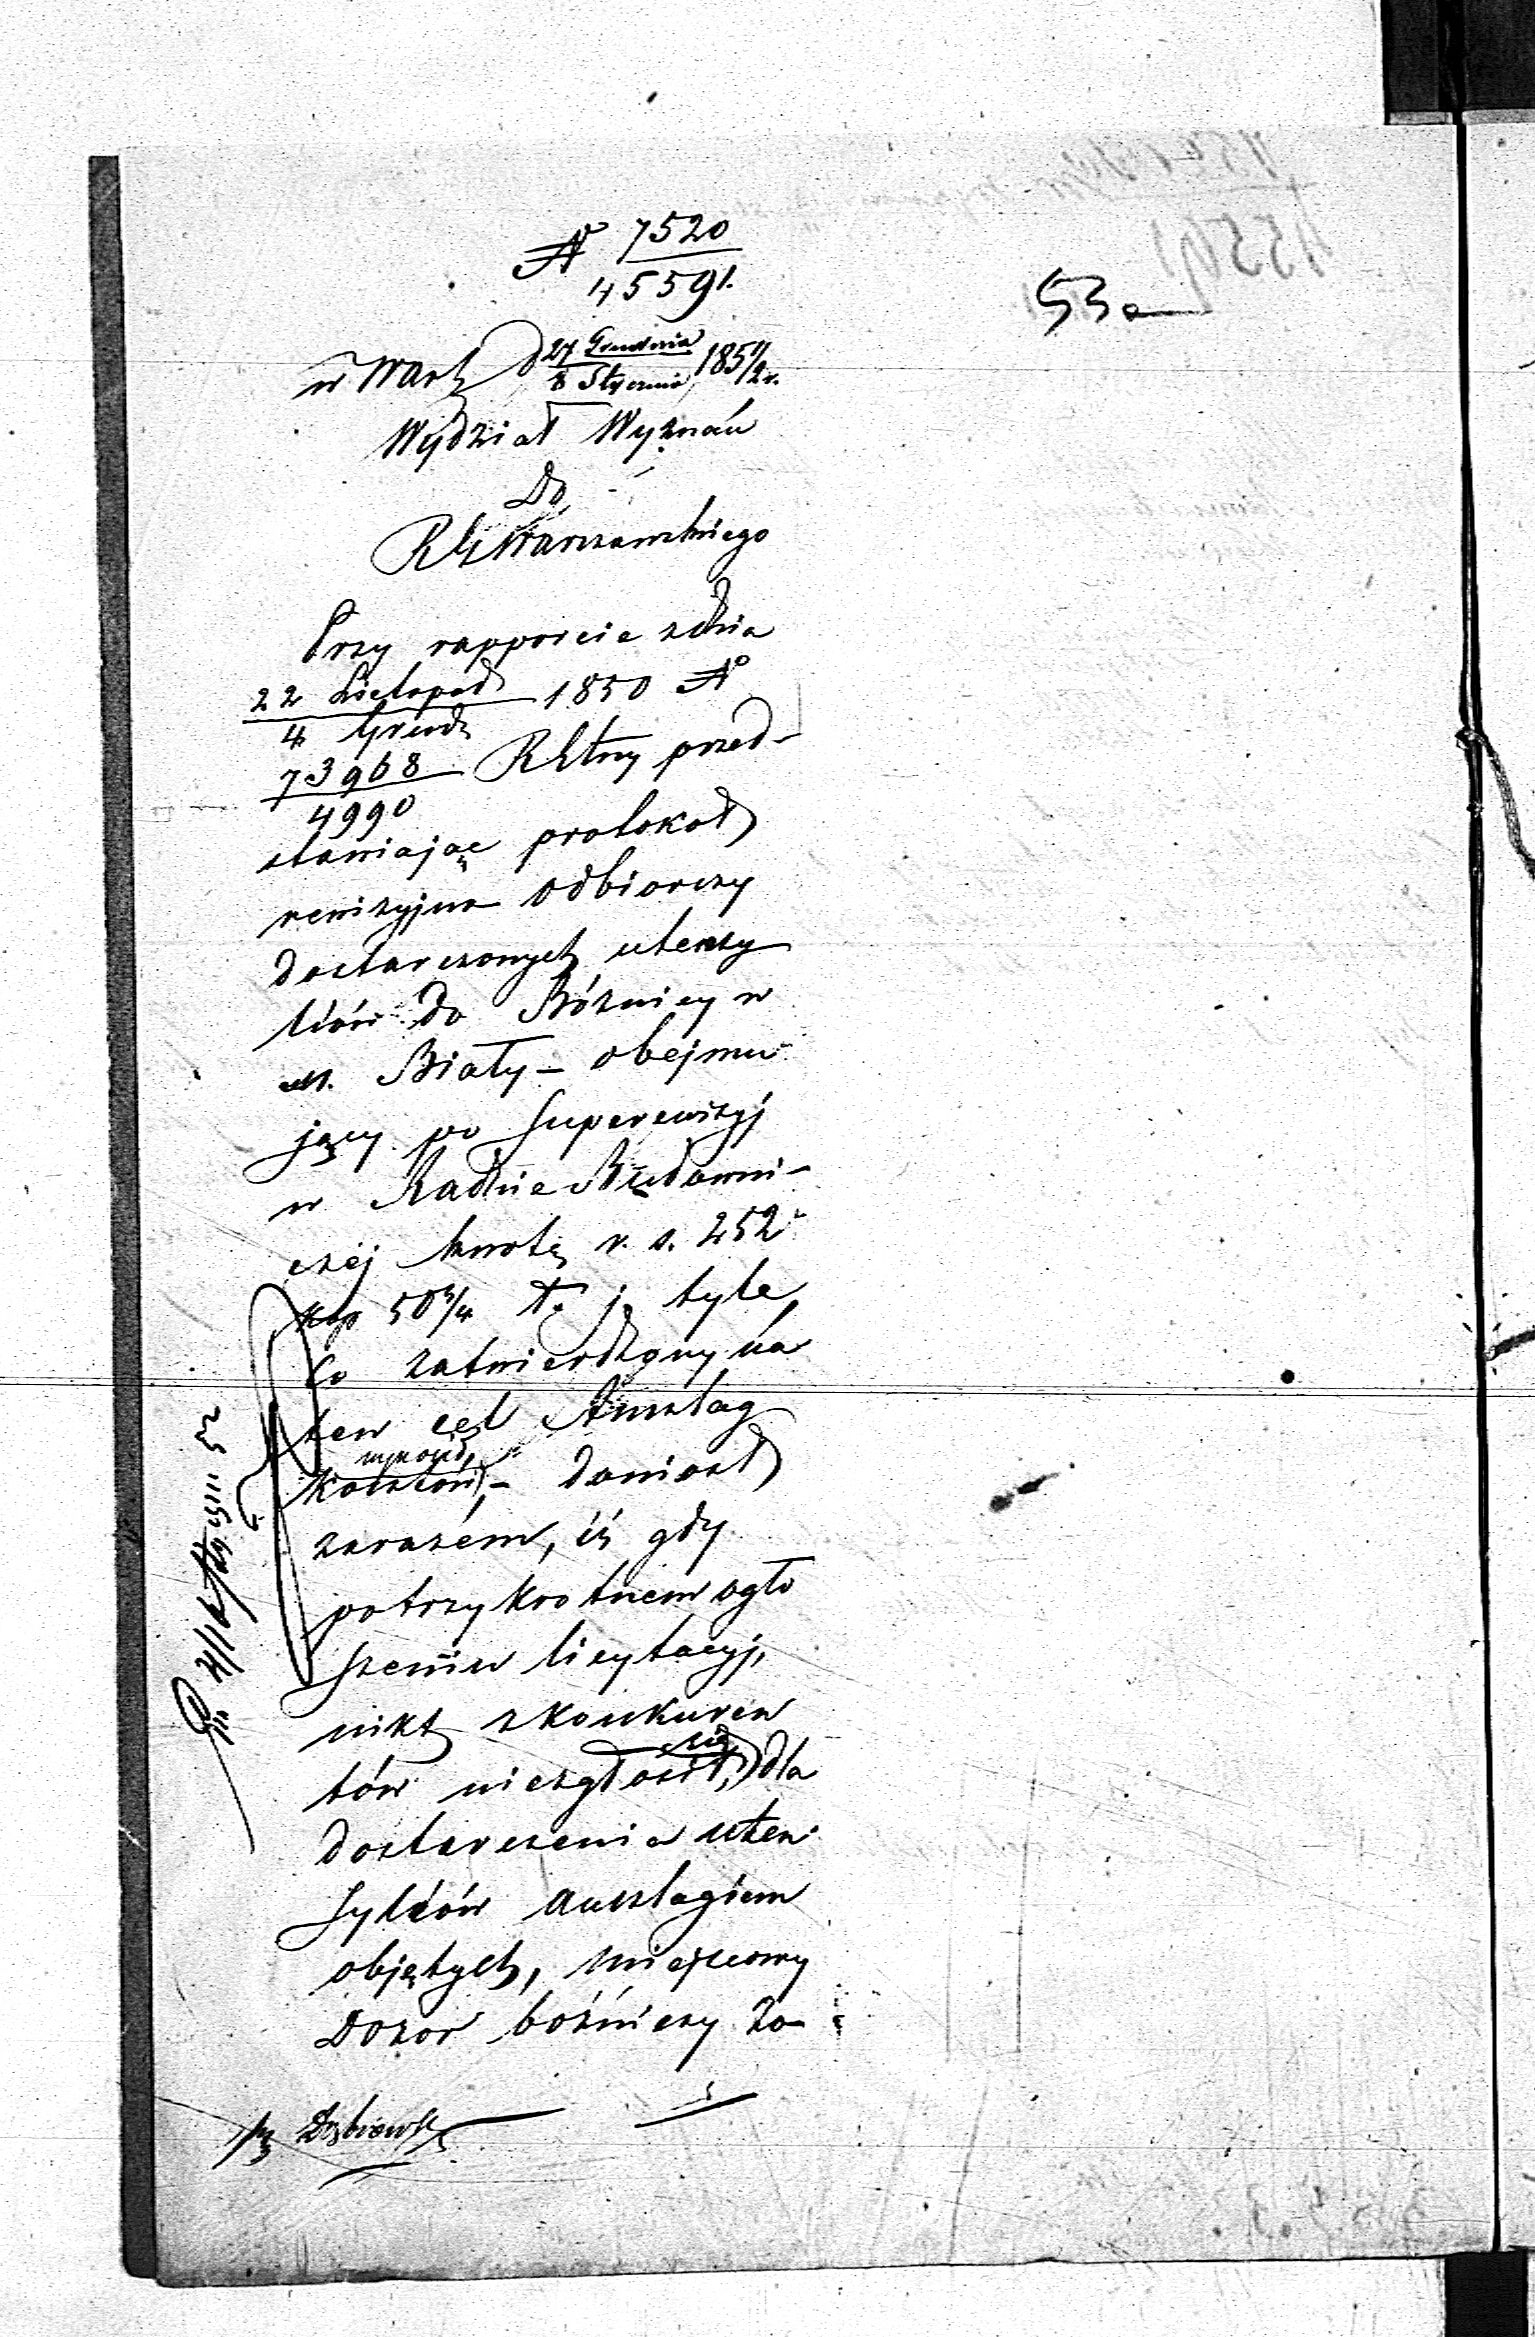 № 7520
45591.
53a
w Warz d 27 Grudnia 1851/2 r.
8 Stycznia
Wydział Wyznań
Do
RG Warszawskiego
Przy rapporcie z dnia
22 Listopad 1850 №
4 Grud
73968 przed-
4990
stawiając protokoł
rewizyjno odbiorczy
dostarczonych utensy
liów do Bóżnicy w
m. Biały - obejmu
jący po superewizyj
w Radzie Budowni-
czéj kwotę r. s. 252
kop 50 3/4 t. j. tyle,
co zatwierdzony na
ten cel Anszlag
wynosił,
Kosztów, - doniosł
zarazém, iż gdy
po trzykrotnem ogło
szeniu licytacyj,
nikt z konkuren
się
tów niezgłosił, dla
dostarczenia uten
syliów anszlagiem
objętych, miejscowy
Dozor bóżniczy zo-